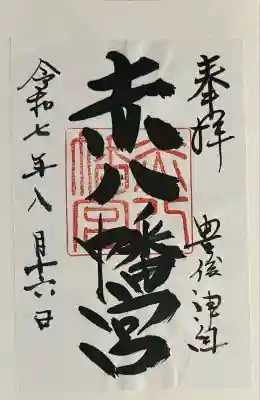 奉拝
豊後
赤八幡宮
赤八幡宮
令和七年八月十六日